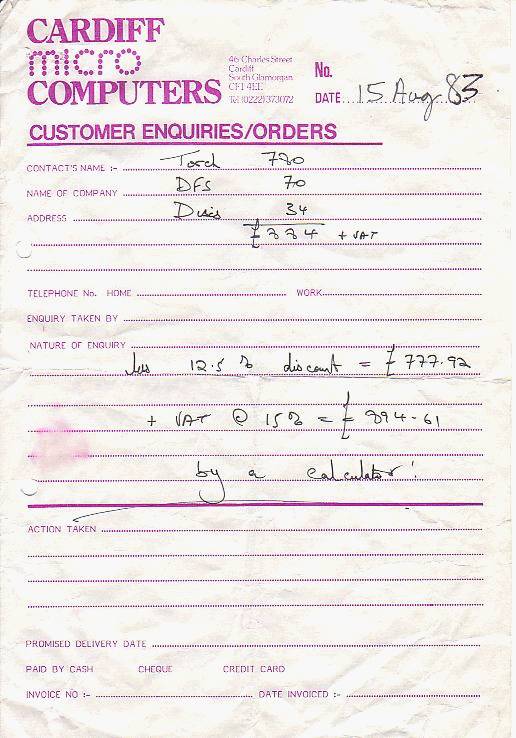 CARDIFF
micro
COMPUTERS
46 Charles Street
Cardiff
South Glamorgan
CF1 4EE
Tel (0222) 373072
No.
DATE 15 Aug 83
CUSTOMER ENQUIRIES/ORDERS
CONTACT'S NAME :- Torch 780
NAME OF COMPANY DFS 70
ADDRESS Discs 34
£884 + VAT
TELEPHONE No. HOME WORK
ENQUIRY TAKEN BY
NATURE OF ENQUIRY
less 12.5 % discount = £777.92
+ VAT @ 15% = £894-61
by a calculator!
ACTION TAKEN
PROMISED DELIVERY DATE
PAID BY CASH CHEQUE CREDIT CARD
INVOICE NO :- DATE INVOICED :-